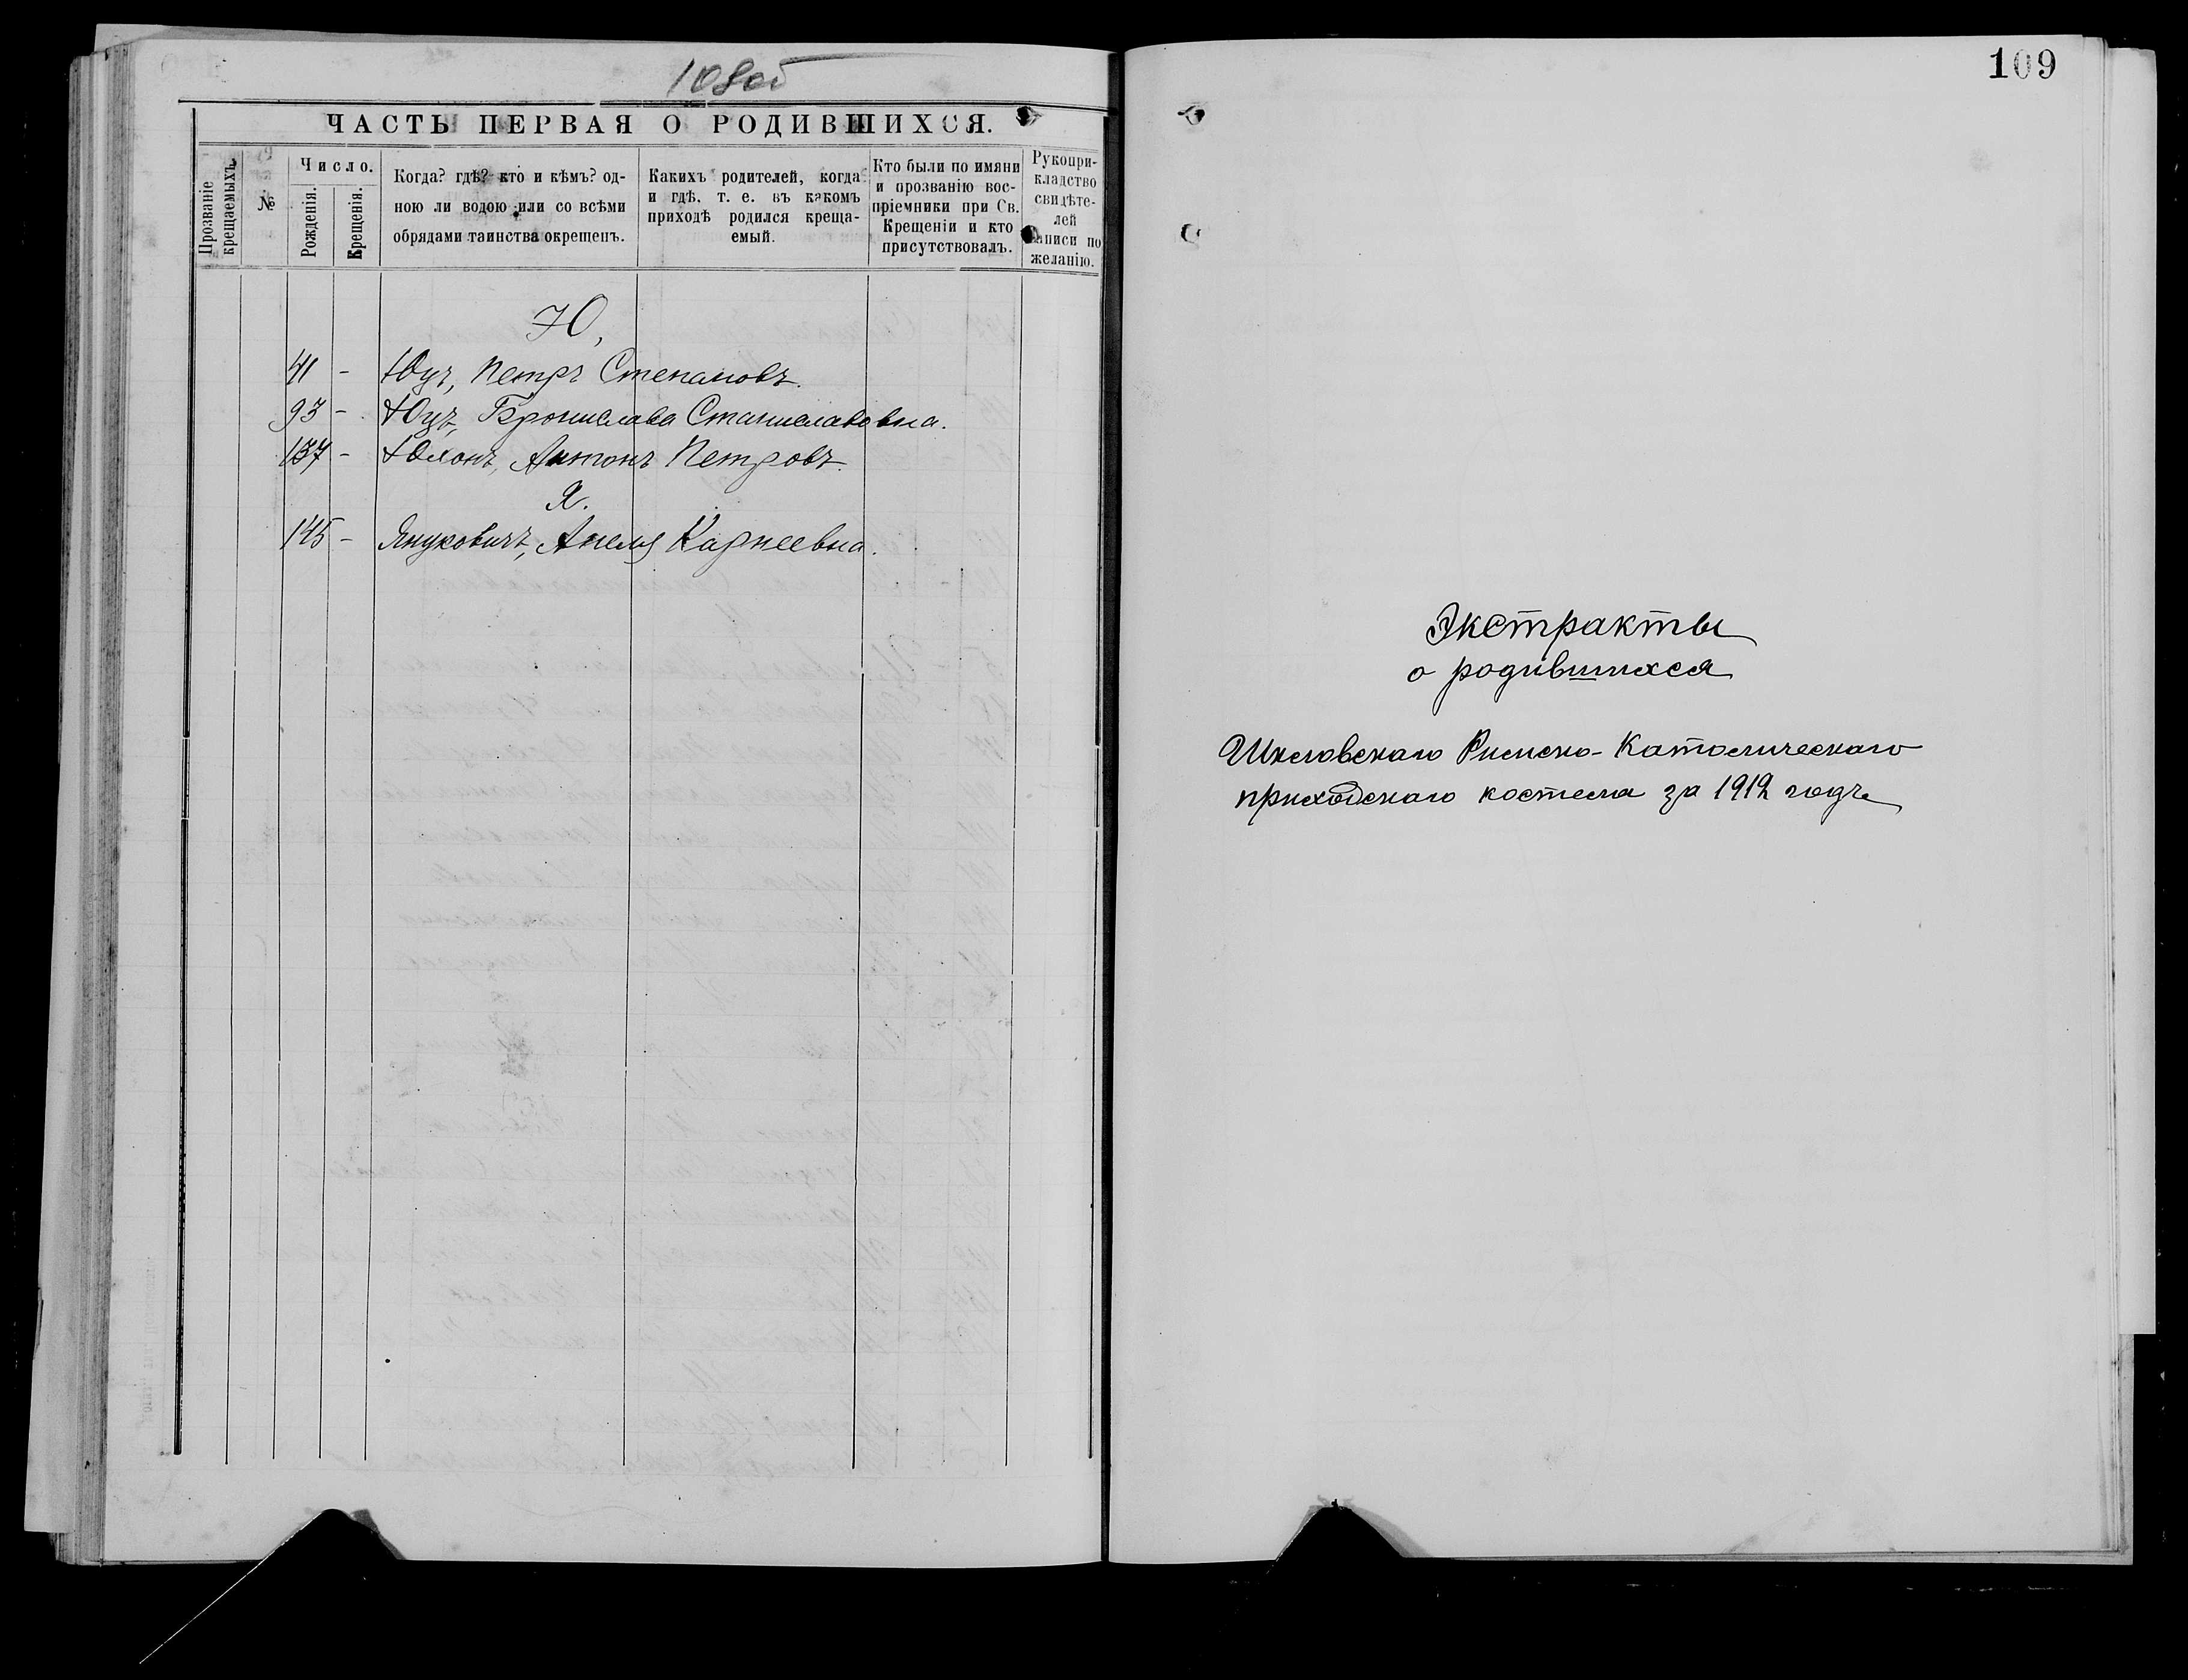 108об
ЧАСТЬ ПЕРВАЯ О РОДИВШИХСЯ.
Прозваніе крещаемыхъ.
№
Число.
Рожденія.
Крещенія.
Когда? гдѣ? кто и кѣмъ? од-
ною ли водою или со всѣми
обрядами таинства окрещенъ.
Какихъ родителей, когда
и гдѣ, т. е. въ какомъ
приходѣ родился креща-
емый.
Кто были по имяни
и прозванію вос-
пріемники при Св.
Крещеніи и кто
присутствовалъ.
Рукопри-
кладство
свидѣте-
лей
записи по
желанію.
Ю,
41 - Юцъ, Петръ Степановъ.
93 - Юцъ, Брониславa Станиславовна.
137 - Антонъ Петровъ.
Я.
145 - Януковичъ, Анеля Карнеевна.
109
Экстракты
о родившихся
Шкловскаго Римско-Католическаго
приходскаго костела за 1912 годъ